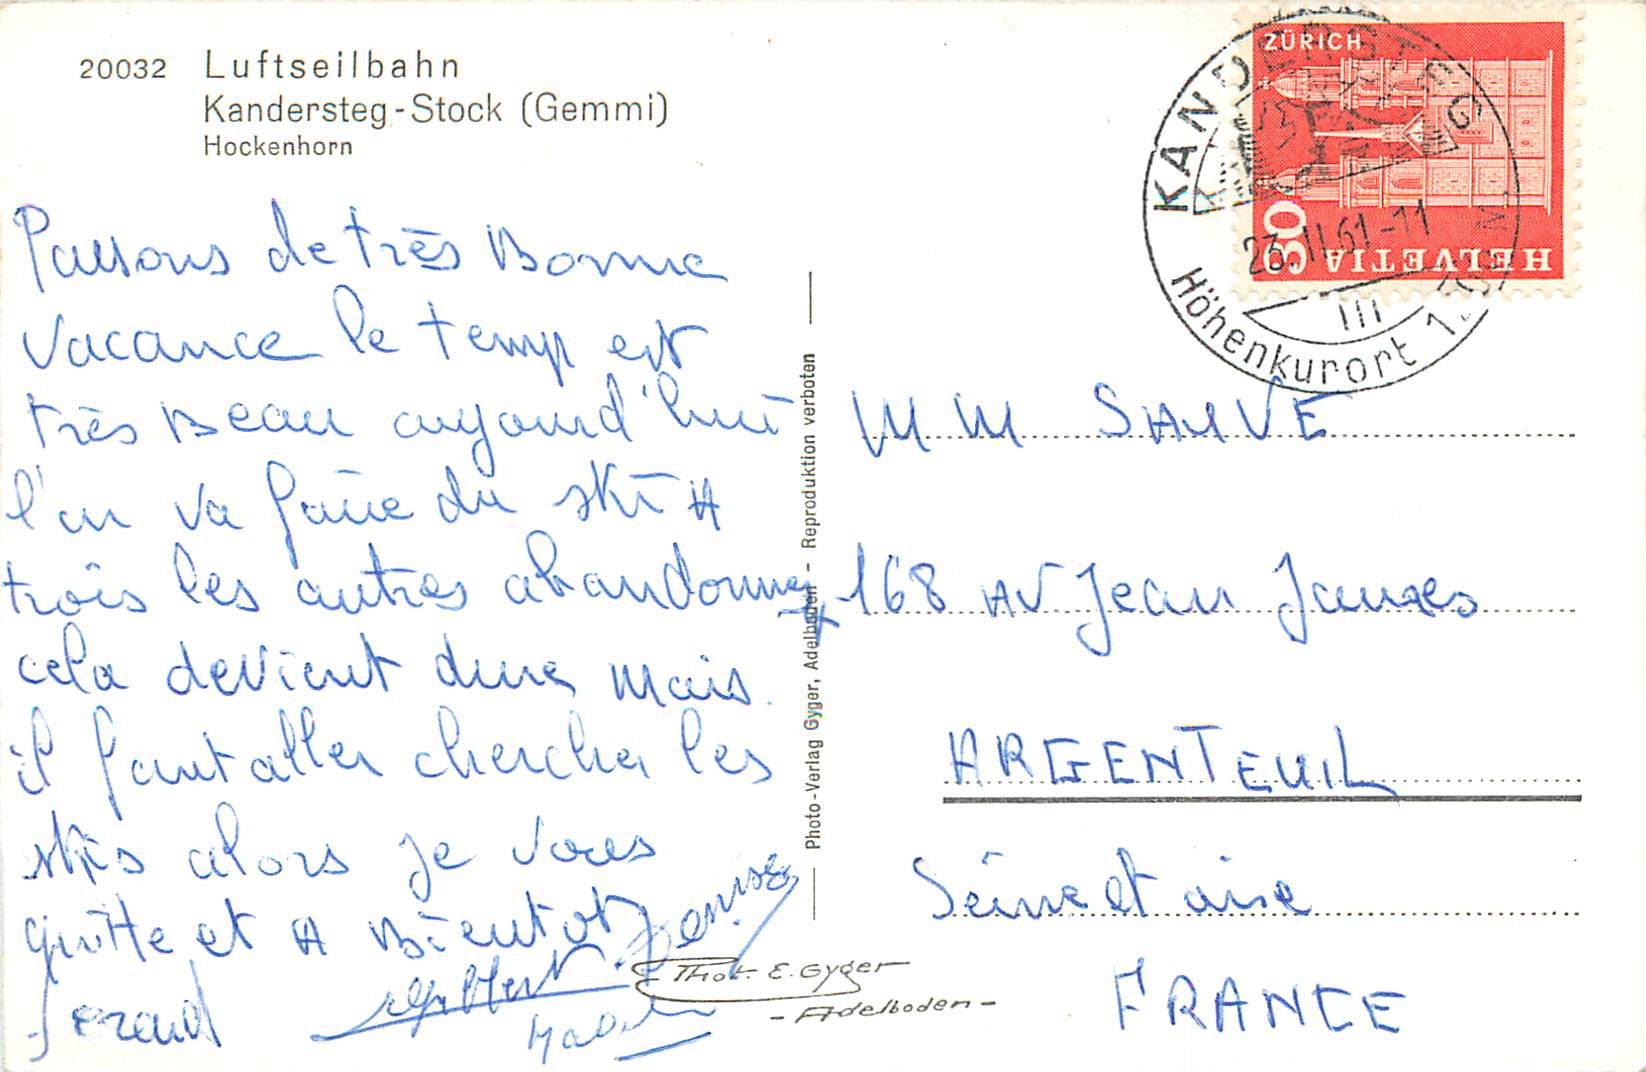 20032 Luftseilbahn
Kandersteg-Stock (Gemmi)
Hockenhorn
Passons de très Bonne
vacance le temp est
très Beau aujourd'hui
l'on va faire du ski A
trois les autres abandonnes
cela devient dure mais
il faut aller chercher les
skis alors je vous
quitte et A Bientot
Denise
Gerard
Photo-Verlag Gyger, Adelboden - Reproduktion verboten
Phot. E. Gyger
- Adelboden -
ZÜRICH
30
HELVETIA
KANDERSTEG
23.II.61-11
III
Höhenkurort
M M SAUVE
168 AV Jean Jaures
ARGENTEUIL
Seine et oise
FRANCE